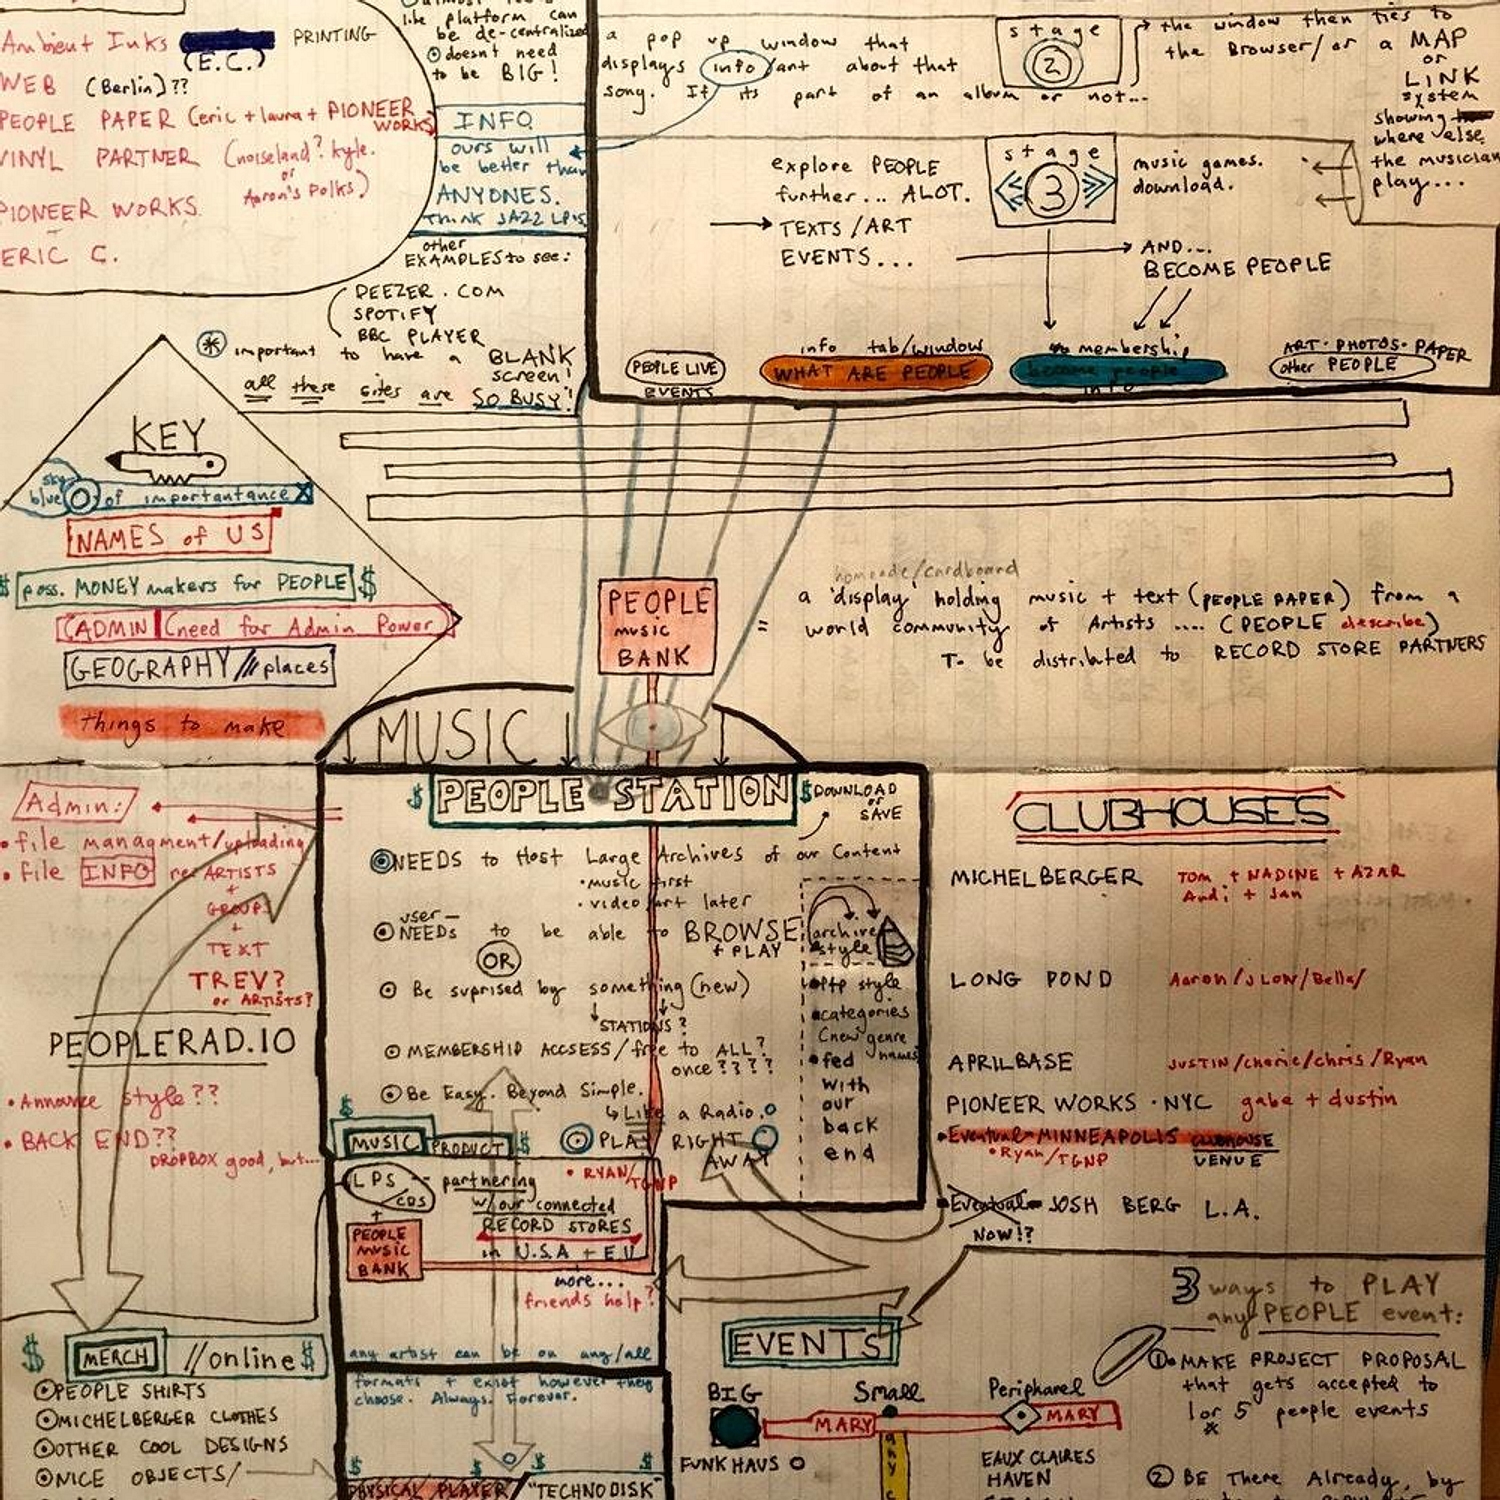 like platform can
be de-centralized
doesn't need
to be BIG!
Ambient Inks
(E.C.)
PRINTING
WEB (Berlin)??
PEOPLE PAPER (eric + laura + PIONEER
WORKS)
VINYL PARTNER (noiseland? Kyle.
or
Aaron's Polks)
PIONEER WORKS.
ERIC C.
INFO
ours will
be better than
ANYONES.
Think JAZZ LP's
other
EXAMPLES to see:
DEEZER.COM
SPOTIFY
BBC PLAYER
important to have a BLANK
screen!
all these sites are SO BUSY!
a pop up window that
displays info/art about that
song. If its part of an album or not...
stage
2
the window then ties to
the Browser/or a MAP
or
LINK
system
showing
where else
the musician
play...
explore PEOPLE
further... ALOT.
TEXTS/ART
EVENTS...
stage
3
music games.
download.
AND...
BECOME PEOPLE
PEOPLE LIVE
EVENTS
info tab/window
WHAT ARE PEOPLE
membership
become people
info
ART·PHOTOS·PAPER
other PEOPLE
KEY
sky
blue O of importantance X
NAMES of US
$ poss. MONEY makers for PEOPLE $
ADMIN (need for Admin Power)
GEOGRAPHY /// places
things to make
PEOPLE
MUSIC
BANK
homemade/cardboard
= a 'display' holding music + text (PEOPLE PAPER) from a
world community of Artists .... (PEOPLE describe)
To be distributed to RECORD STORE PARTNERS
MUSIC
$ PEOPLE STATION $
DOWNLOAD
or
SAVE
NEEDS to Host Large Archives of our Content
· music first
· video art later
user -
NEEDs to be able to BROWSE
+ PLAY
OR
Be suprised by something (new)
STATIONS?
MEMBERSHIP ACCSESS/free to ALL?
once????
Be Easy. Beyond Simple.
Like a Radio.
PLAY RIGHT
AWAY
archive
style
ptp style
categories
(new genre
names
fed
with
our
back
end
Admin:
• file managment/uploading
• file INFO re: ARTISTS
+
GROUPS
+
TEXT
TREV?
or ARTISTS?
PEOPLERAD.IO
• Annuaire style??
• BACK END??
DROPBOX good, but...
CLUBHOUSES
MICHELBERGER Tom + NADINE + AZAR
Andi + Jan
LONG POND Aaron/JLON/Bella/
APRILBASE JUSTIN/cherie/chris/Ryan
PIONEER WORKS · NYC gabe + dustin
Eventual MINNEAPOLIS CLUBHOUSE
• Ryan/TGNP VENUE
Eventual JOSH BERG L.A.
NOW!?
$
MUSIC PRODUCT $
LPS
CDS
- partnering
w/our connected
RECORD STORES
in U.S.A + EU
• RYAN/TGNP
+
PEOPLE
MUSIC
BANK
more...
friends help?
any artist can be on any/all
formats + exist however they
choose. Always. Forever.
$ $ $ $
PHYSICAL PLAYER "TECHNO DISK"
$ MERCH //online $
PEOPLE SHIRTS
MICHELBERGER CLOTHES
OTHER COOL DESIGNS
NICE OBJECTS/
EVENTS
BIG Small Peripharel
MARY MARY
FUNKHAUS
EAUX CLAIRES
HAVEN
3 ways to PLAY
any PEOPLE event:
1 MAKE PROJECT PROPOSAL
that gets accepted to
1 or 5 people events
2 BE There Already, by